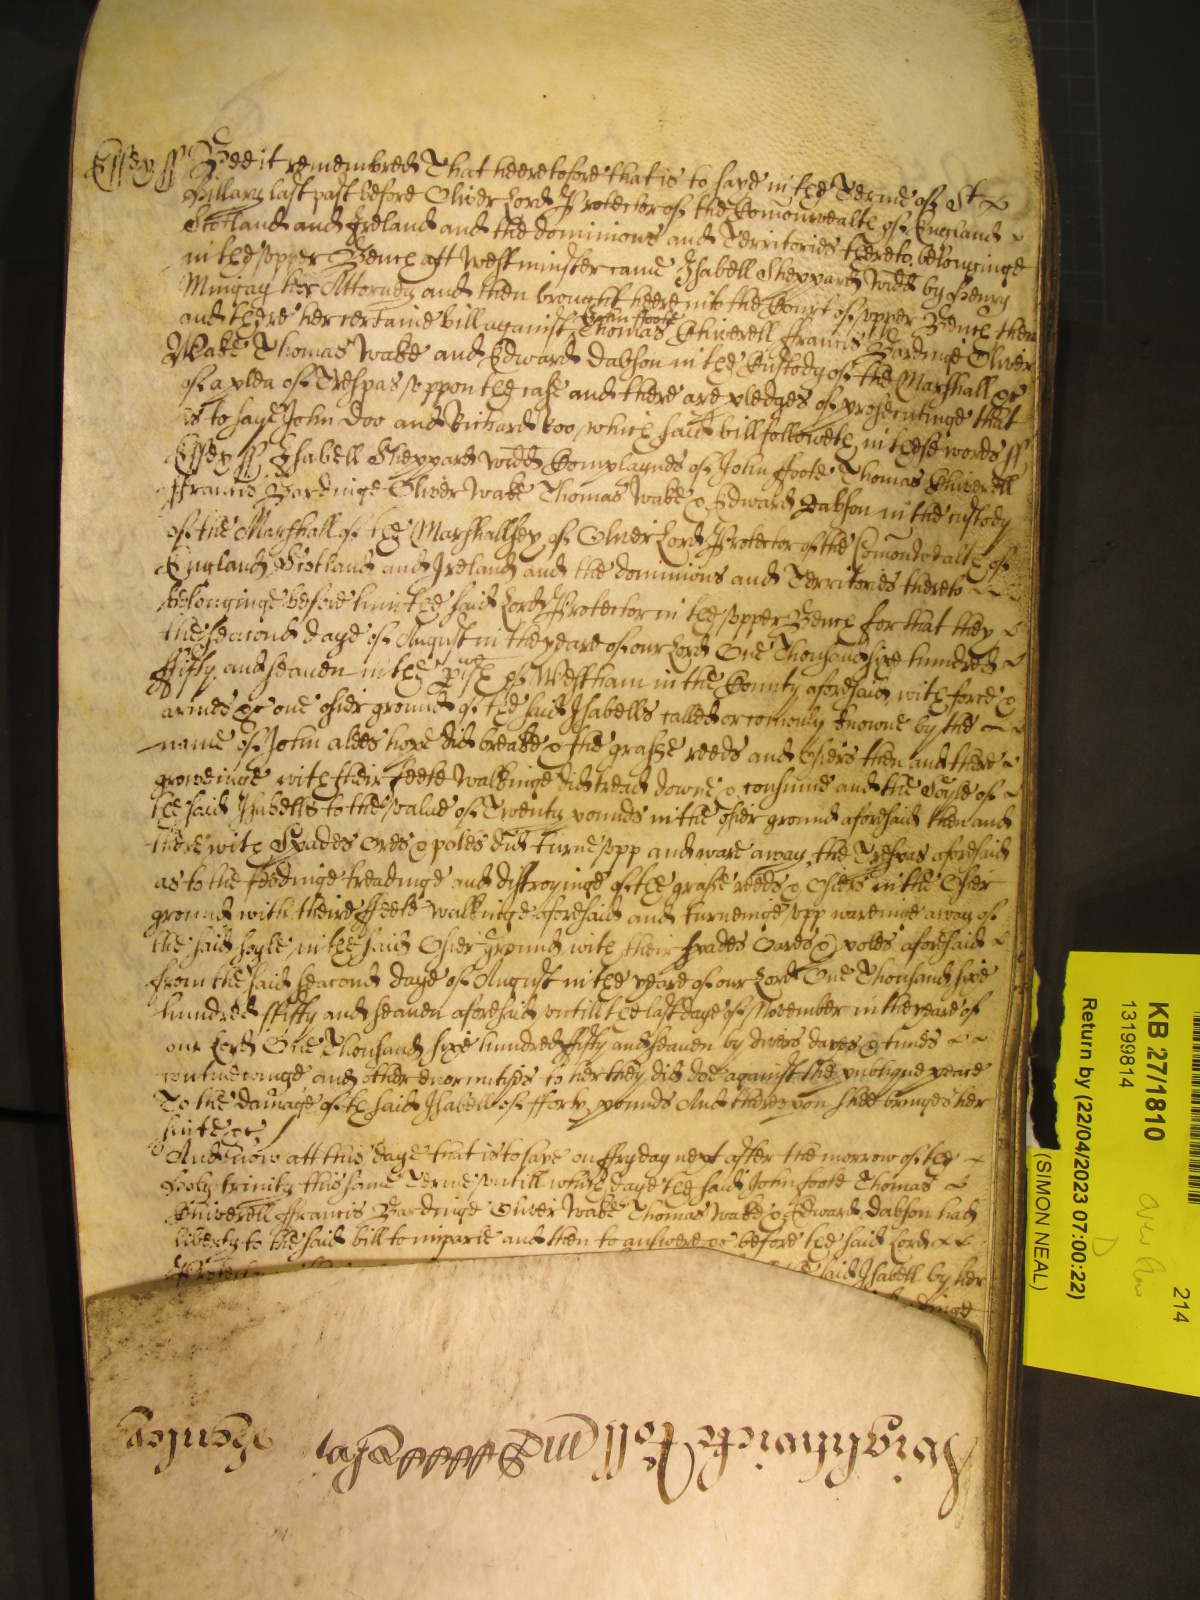 Essex ss Bee it remembred That heeretofore that is to saye in the Terme of St
Hillary last past before Oliver Lord Protector of the Comonwealth of England
Scotland and Ireland and the dominions and Territories thereto belonginge
in the upper Bench att Westminster came Isabell Sheppard widd by Henry
Mingay her Attorney and then brought heere into the Court of upper Bench then
and there her certaine bill against John ffoote Thomas Chiverell ffrancis Bardinge Oliver
Wake Thomas Wake and Edward Dabson in the Custody of the Marshall &c
of a plea of Trespas uppon the case and there are pledges of prosecutinge that
is to saye John Doo and Richard Roo which said bill followeth in these words ss
Essex ss Isabell Sheppard widd Complaynes of John ffoote Thomas Chiverell
ffrancis Bardinge Oliver Wake Thomas Wake & Edward Dabson in the custody
of the Marshall of the Marshallsey of Oliver Lord Protector of the Comonwealth of
England Scotland and Ireland and the dominions and Territories thereto
belonginge before him the said Lord Protector in the upper Bench for that they
the seacond daye of August in the yeare of our Lord One Thousand sixe hundred
ffifty and seaven in the pish of Westham in the County aforesaid with force &
armes &c one osier ground of the said Isabells called or comonly knowne by the
name of John a lees hope did breake & the grasse reeds and osiers then and there
groweinge with their feete walkinge did tread downe & consume and the Soyle of
the said Isabells to the value of Twenty pounds in the osier ground aforesaid then and
there with Spades Ores & poles did turne upp and ware away the Trespas aforesaid
as to the feedinge treadinge and distroyinge of the grasse reeds & Osiers in the Osier
ground with theire ffeete walkinge aforesaid and turneinge upp wareinge away of
the said soyle in the said Osier ground with their spades Oares & poles aforesaid
from the said seacond daye of August in the yeare of our Lord One Thousand sixe
hundred ffifty and seaven aforesaid untill the last daye of November in the yeare of
our Lord One Thousand sixe hundred ffifty and seaven by divers dayes & times
continewinge and other enormityes to her they did doe against the publique peace
To the damage of the said Isabell of fforty pounds And thereupon shee bringes her
suite &c
And now att this daye that is to saye on ffryday next after the morrow of the
Holy trinity this same Terme untill which daye the said John ffoote Thomas
Chiverell ffrancis Bardinge Oliver Wake Thomas Wake & Edward Dabson had
liberty to the said bill to imparle and then to answere &c before the said Lord
Protector said Isabell by her
KB 27/1810
13199814
Return by (22/04/2023 07:00:22)
(SIMON NEAL)
214